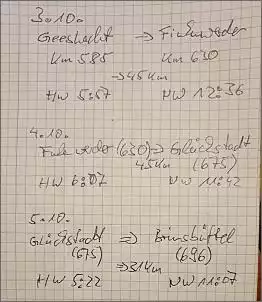 3.10.
Geesthacht → Finkenwerder
Km 585 Km 630
→ 45 Km
HW 5:57 NW 12:36
4.10.
Finkenwerder (630) → Glückstadt
45Km (675)
HW 6:07 NW 11:42
5.10.
Glückstadt ⇒ Brunsbüttel
(675) (696)
→ 31Km
HW 5:22 NW 11:07